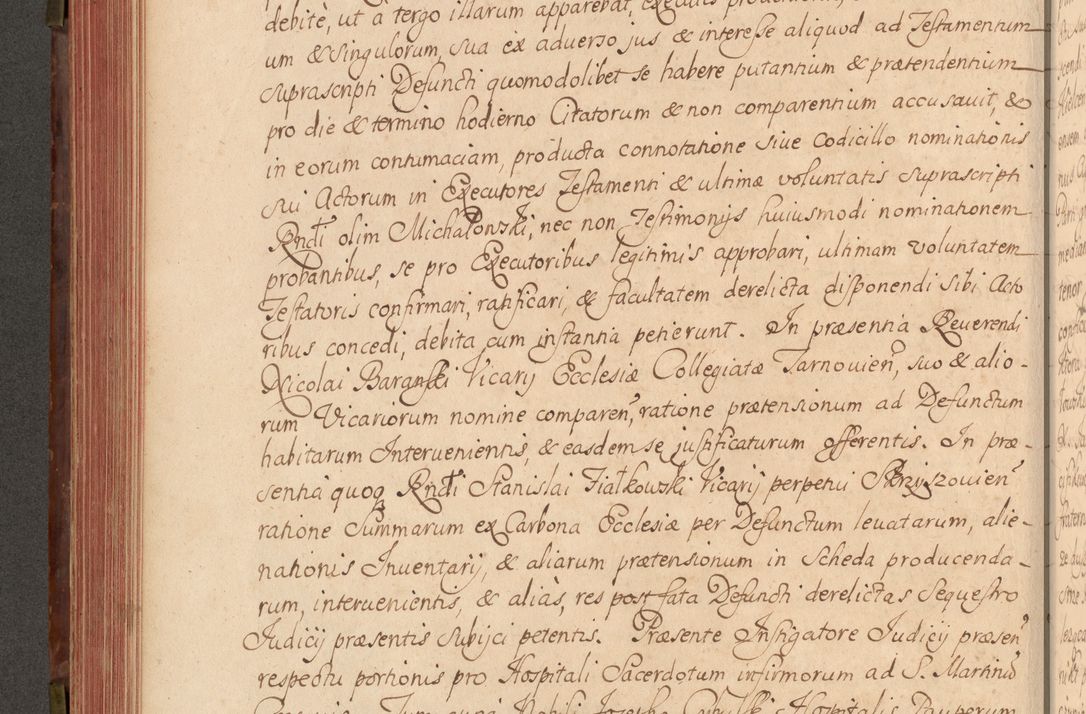 debitè, ut a tergo illarum apparebat,
um & Singulorum, sua ex adverso jus & interesse aliquod ad Testamentum
suprascripti Defuncti quomodolibet se habere putantium & prætendentium
pro die & termino hodierno Citatorum & non comparentium accusavit, &
in eorum contumaciam, producta connotatione sive Codicillo nominationis
sui Actorum in Executores Testamenti & ultimæ voluntatis suprascripti
Rndi olim Michałowski, nec non Testimonijs huiusmodi nominationem
probantibus, se pro Executoribus legitimis approbari, ultimam voluntatem
Testatoris confirmari, ratificari, & facultatem derelicta disponendi sibi Acto
ribus concedi, debita cum instantia petierunt. In præsentia Reverendi
Nicolai Barański Vicarij Ecclesiæ Collegiatæ Tarnovien, suo & alio-
rum Vicariorum nomine comparen, ratione prætensionum ad Defunctum
habitarum Intervenientis, & easdem se justificaturum offerentis. In præ-
sentia quoq Rndi Stanislai Fiałkowski Vicarij perpetui
ratione Summarum ex Carbona Ecclesiæ per Defunctum levatarum, alie-
nationis Inventarij, & aliarum prætensionum in Scheda producenda-
rum, intervenientis, & aliàs, res post fata Defuncti derelictas Sequestro
Judicij præsentis subijci petentis. Præsente Instigatore Judicij præsen
respectu portionis pro Hospitali Sacerdotum infirmorum ad S. Martinū
Hospitalis Pauperum